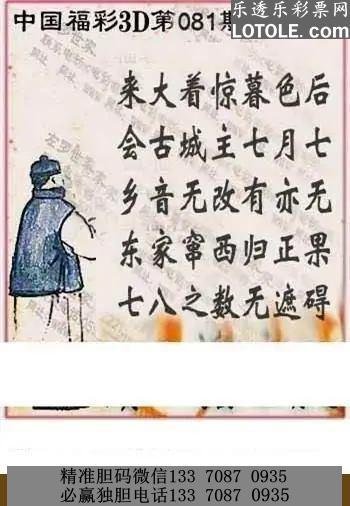 中国福彩3D第081期
乐透乐彩票网
LOTOLE.com
来大着惊暮色后
会古城主七月七
乡音无改有亦无
东家窜西归正果
七八之数无遮碍
精准胆码微信133 7087 0935
必赢独胆电话133 7087 0935